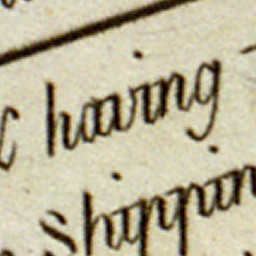 having
shippin